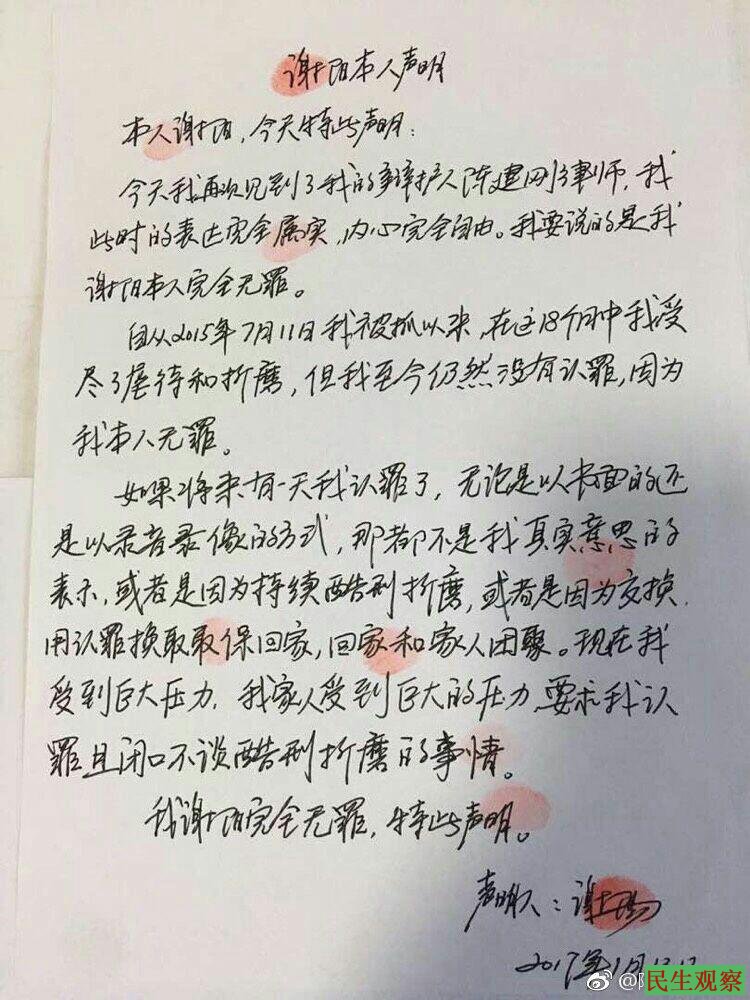 谢阳本人声明
本人谢阳，今天特此声明：
今天我再次见到了我的辩护人陈建刚律师，我
此时的表达完全属实，内心完全自由。我要说的是我
谢阳本人完全无罪。
自从2015年7月11日我被抓以来，在这18个月中我受
尽了虐待和折磨，但我至今仍然没有认罪，因为
我本人无罪。
如果将来有一天我认罪了，无论是以书面的还
是以录音录像的方式，那都不是我真实意思的
表示，或者是因为持续酷刑折磨，或者是因为交换，
用认罪换取取保回家，回家和家人团聚。现在我
受到巨大压力，我家人受到巨大的压力，要求我认
罪且闭口不谈酷刑折磨的事情。
我谢阳完全无罪，特此声明。
声明人：谢阳
2017年1月13日
民生观察